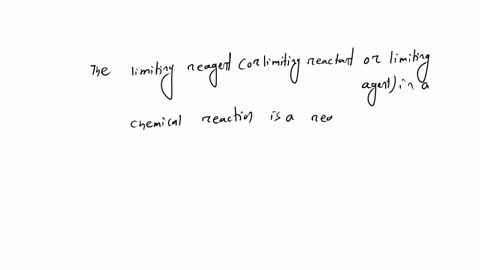 The limiting reagent (or limiting reactant or limiting
agent) in a
chemical reaction is a rea